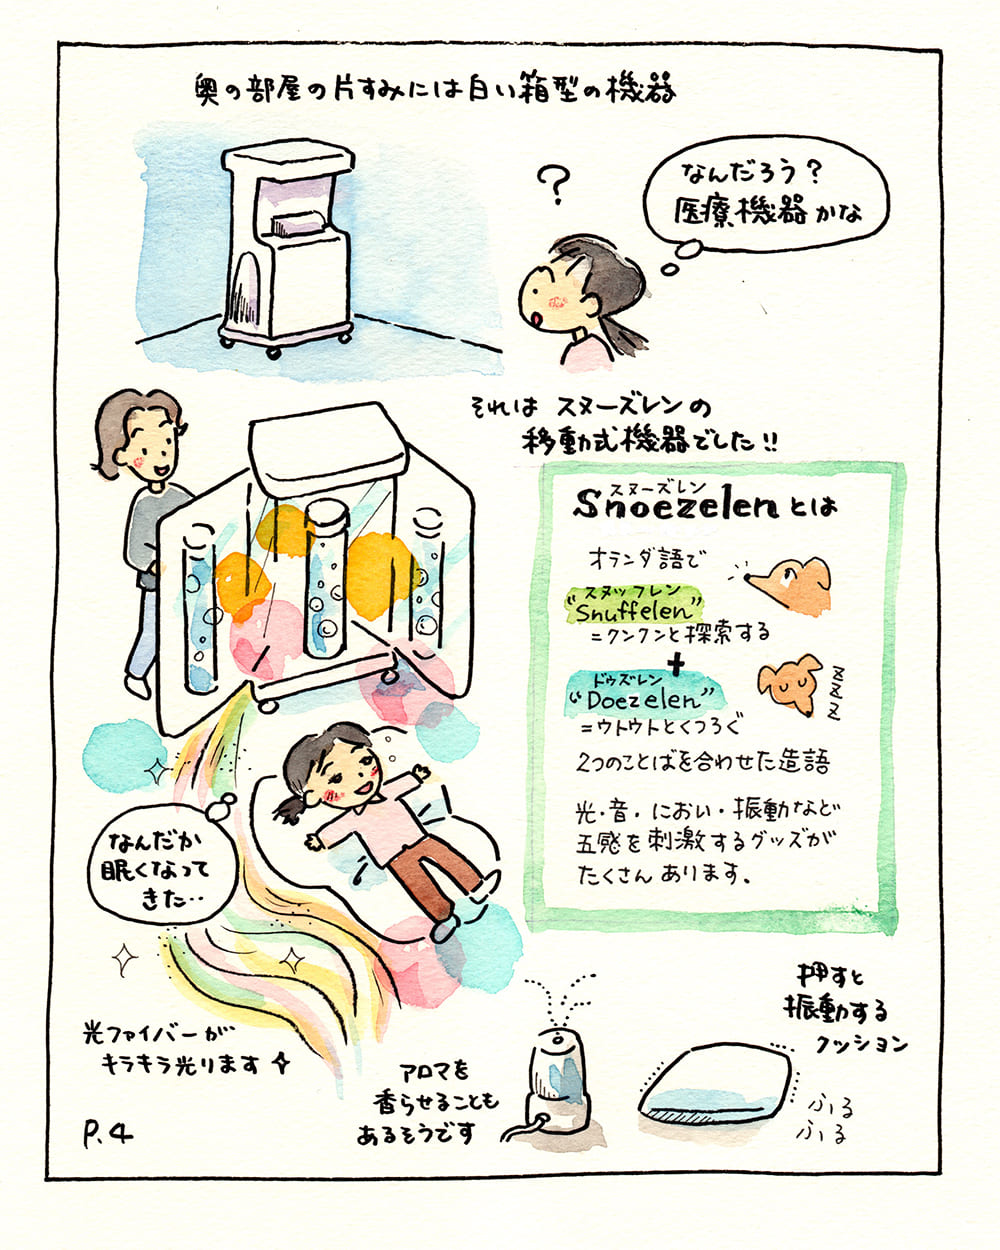 奥の部屋の片すみには白い箱型の機器
?
なんだろう?
医療機器かな
それは スヌーズレンの
移動式機器でした!!
スヌーズレン
Snoezelenとは
オランダ語で
スヌッフレン
"Snuffelen"
=クンクンと探索する
+
ドゥズレン
"Doezelen"
=ウトウトとくつろぐ
ZZZZ
2つのことばを合わせた造語
光・音・におい・振動など
五感を刺激するグッズが
たくさんあります。
なんだか
眠くなって
きた‥
光ファイバーが
キラキラ光ります
アロマを
香らせることも
あるそうです
押すと
振動する
クッション
ふる
ふる
P.4